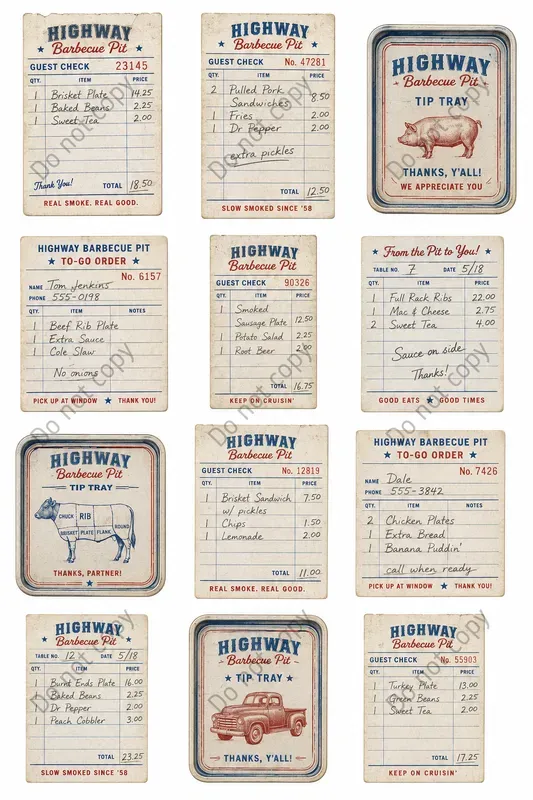 HIGHWAY
Barbecue Pit
GUEST CHECK 23145
QTY. ITEM PRICE
1 Brisket Plate 14.25
1 Baked Beans 2.25
1 Sweet Tea 2.00
Thank You! TOTAL 18.50
REAL SMOKE. REAL GOOD.
HIGHWAY
Barbecue Pit
GUEST CHECK No. 47281
QTY. ITEM PRICE
2 Pulled Pork
Sandwiches 8.50
1 Fries 2.00
1 Dr Pepper 2.00
extra pickles
TOTAL 12.50
SLOW SMOKED SINCE '58
HIGHWAY
Barbecue Pit
TIP TRAY
THANKS, Y'ALL!
WE APPRECIATE YOU
HIGHWAY BARBECUE PIT
TO-GO ORDER
No. 6157
NAME Tom Jenkins
PHONE 555-0198
QTY. ITEM NOTES
1 Beef Rib Plate
1 Extra Sauce
1 Cole Slaw
No onions
PICK UP AT WINDOW THANK YOU!
HIGHWAY
Barbecue Pit
GUEST CHECK 90326
QTY. ITEM PRICE
1 Smoked
Sausage Plate 12.50
1 Potato Salad 2.25
1 Root Beer 2.00
TOTAL 16.75
KEEP ON CRUISIN'
From the Pit to You!
TABLE NO. 7 DATE 5/18
QTY. ITEM PRICE
1 Full Rack Ribs 22.00
1 Mac & Cheese 2.75
2 Sweet Tea 4.00
Sauce on side
Thanks!
GOOD EATS GOOD TIMES
HIGHWAY
Barbecue Pit
TIP TRAY
CHUCK RIB ROUND
BRISKET PLATE FLANK
THANKS, PARTNER!
HIGHWAY
Barbecue Pit
GUEST CHECK No. 12819
QTY. ITEM PRICE
1 Brisket Sandwich 7.50
w/ pickles
1 Chips 1.50
1 Lemonade 2.00
TOTAL 11.00
REAL SMOKE. REAL GOOD.
HIGHWAY BARBECUE PIT
TO-GO ORDER
No. 7426
NAME Dale
PHONE 555-3842
QTY. ITEM NOTES
2 Chicken Plates
1 Extra Bread
1 Banana Puddin'
call when ready
PICK UP AT WINDOW THANK YOU!
HIGHWAY
Barbecue Pit
TABLE NO. 12 DATE 5/18
QTY. ITEM PRICE
1 Burnt Ends Plate 16.00
1 Baked Beans 2.25
1 Dr Pepper 2.00
1 Peach Cobbler 3.00
TOTAL 23.25
SLOW SMOKED SINCE '58
HIGHWAY
Barbecue Pit
TIP TRAY
THANKS, Y'ALL!
HIGHWAY
Barbecue Pit
GUEST CHECK No. 55903
QTY. ITEM PRICE
1 Turkey Plate 13.00
1 Green Beans 2.25
1 Sweet Tea 2.00
TOTAL 17.25
KEEP ON CRUISIN'
Do not copy
Do not copy
Do not copy
Do not copy
Do not copy
Do not copy
Do not copy
Do not copy
Do not copy